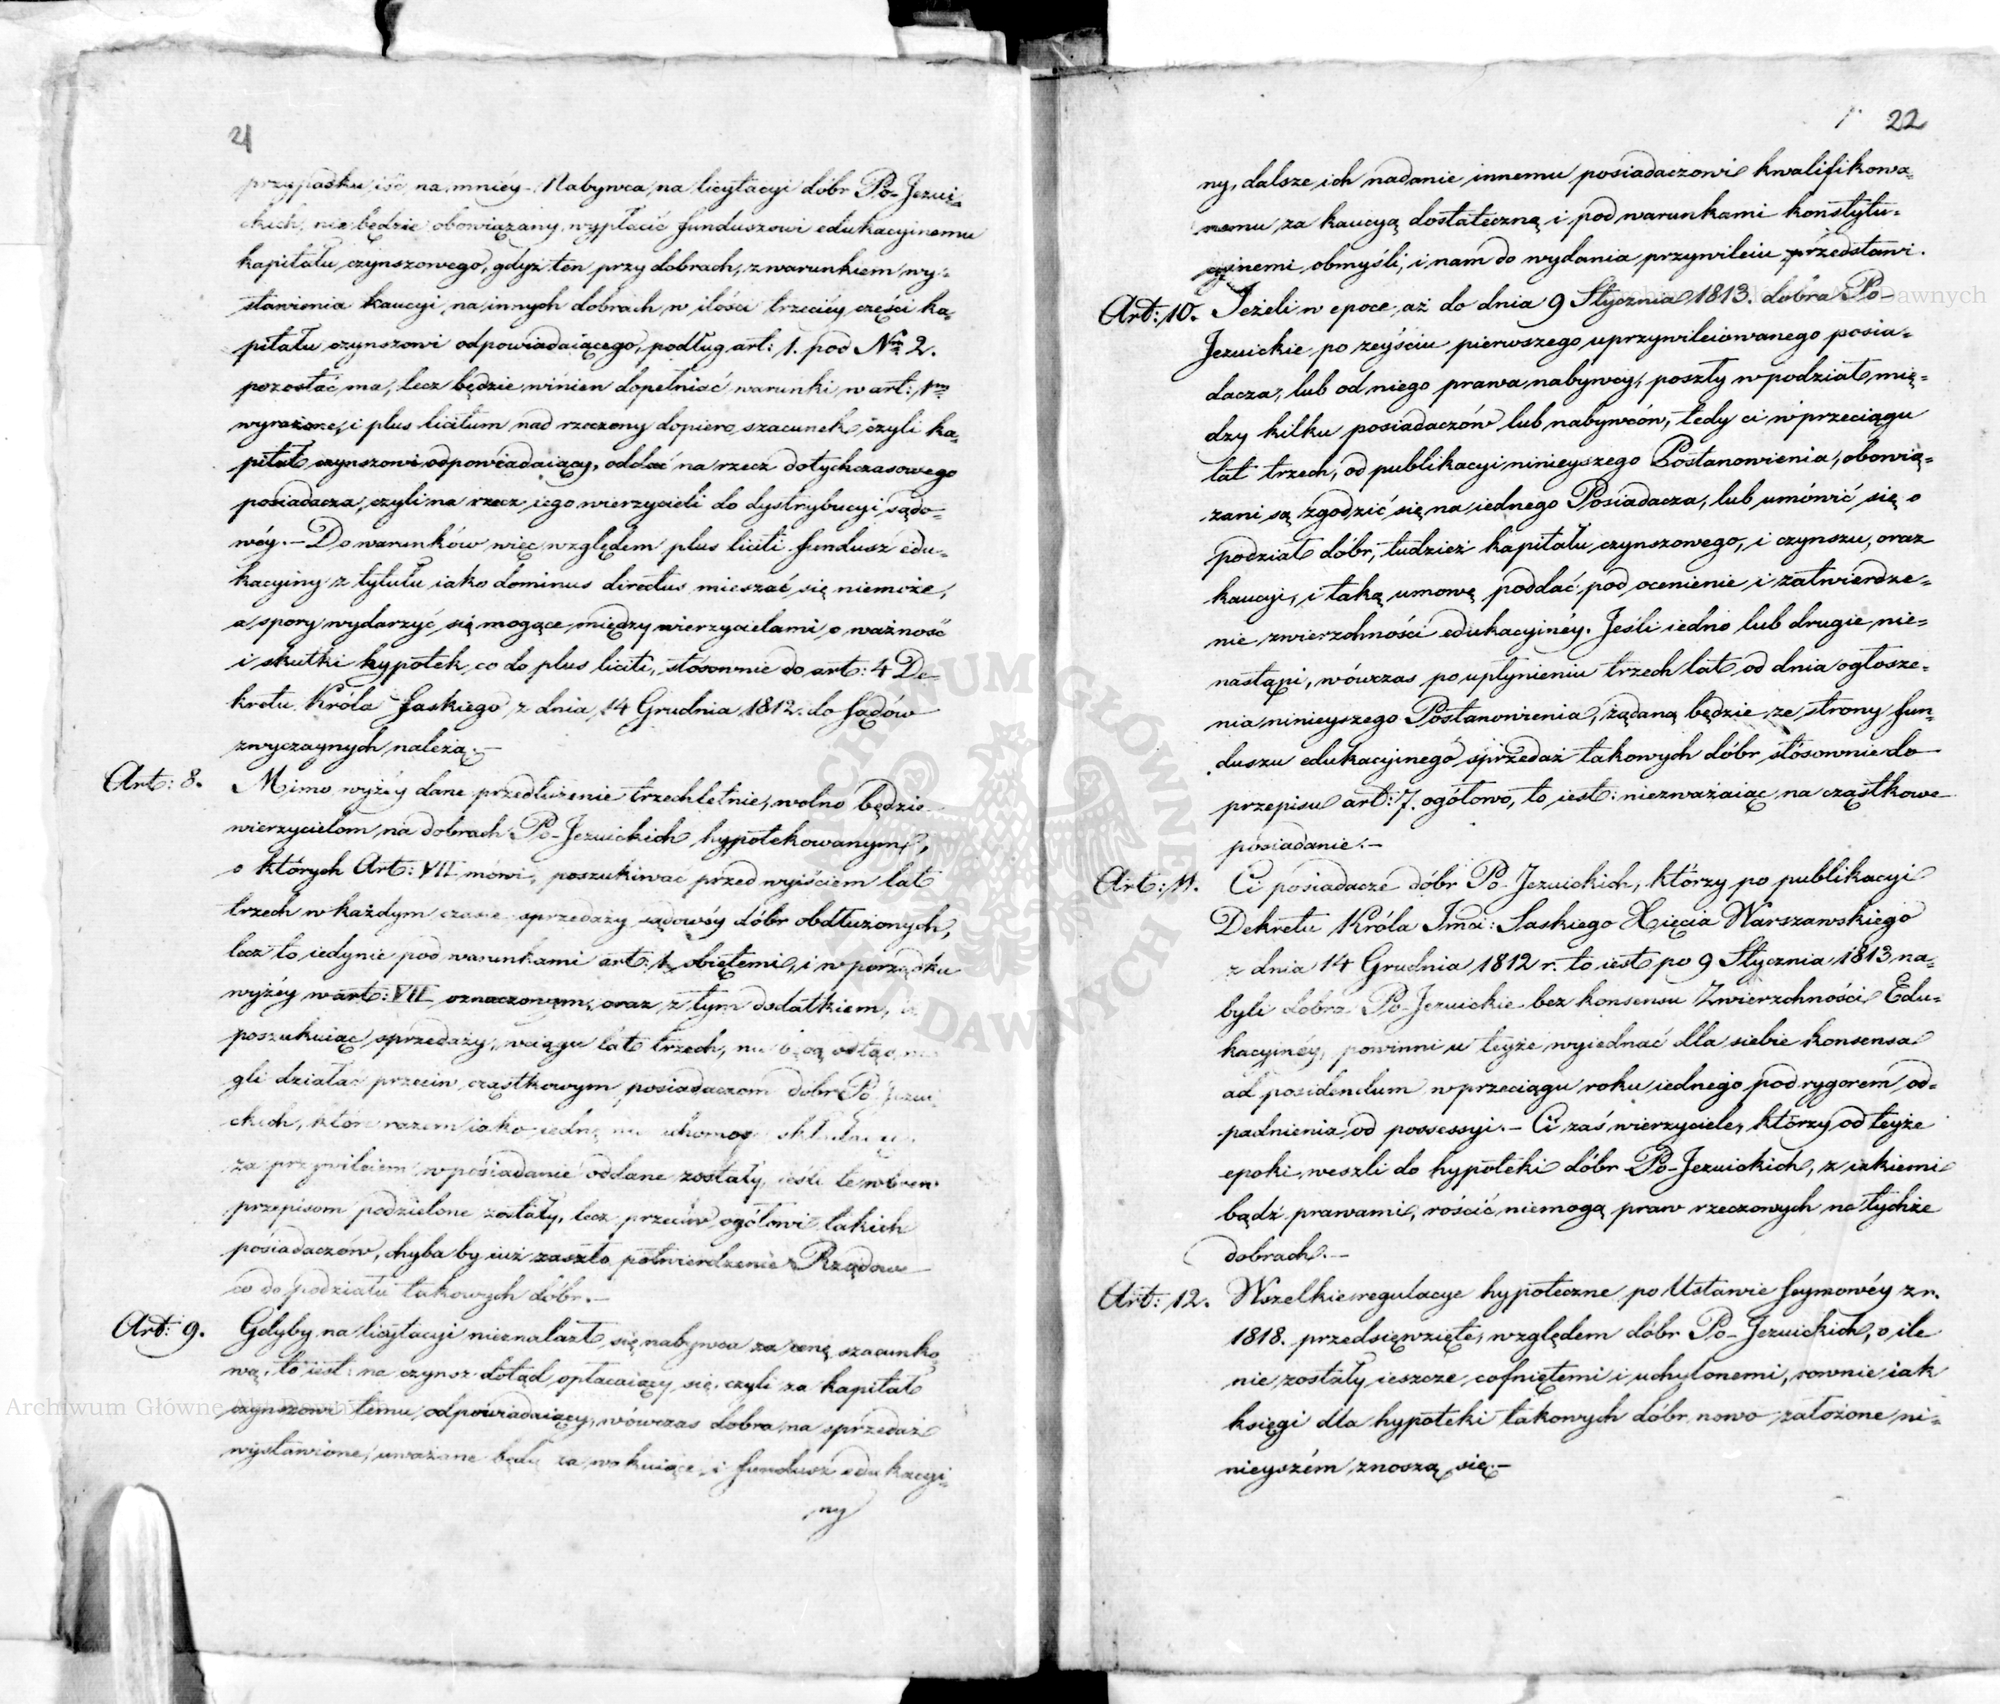 21
przypadku iść na mniéy. Nabywca na licytacyi dóbr Po-Jezui-
ckich, nie będzie obowiązany wypłacić funduszowi edukacyinemu
kapitału czynszowego, gdyż ten przy dobrach, z warunkiem wy-
stawienia kaucyi na innych dobrach w ilości trzeciéy części ka-
pitału czynszowi odpowiadaiącego, podług art: 1. pod Nrm 2.
pozostać ma, lecz będzie winien dopełniać warunki w art: 1m
wyrażone, i plus licitum nad rzeczony dopiero szacunek czyli ka-
pitał czynszowi odpowiadaiący, oddać na rzecz dotychczasowego
posiadacza, czyli na rzecz iego wierzycieli do dystrybucyi sądo-
wéy. – Do warunków więc względem plus liciti fundusz edu-
kacyiny z tytułu iako dominus directus mieszać się niemoże,
a spory wydarzyć się mogące między wierzycielami o ważność
i skutki hypotek co do plus liciti, stósownie do art: 4 De-
kretu Króla Saskiego z dnia 14 Grudnia 1812. do Sądów
zwyczaynych należą. –
Art: 8. Mimo wyżéy dane przedłużenie trzechletnie, wolno będzie
wierzycielom na dobrach Po-Jezuickich hypotekowanym,
o których Art: VII mówi, poszukiwać przed wyiściem lat
trzech w każdym czasie sprzedaży sądowéy dóbr obdłużonych,
lecz to iedynie pod warunkami art: 1 obiętemi, i w porządku
wyżéy w art: VII oznaczonym, oraz z tym dodatkiem,
poszukuiąc sprzedaży w ciągu lat trzech, nie będą
gli działać przeciw cząstkowym posiadaczom dobr Po-Jezui-
ckich, które razem iako iedną
za przywileiem w posiadanie oddane zostały, ieśli te wbrew
przepisom podzielone zostały, lecz przeciw ogółowi takich
posiadaczów, chyba by iuż zaszło potwierdzenie Rządowe
co do podziału takowych dóbr. –
Art: 9. Gdyby na licytacyi nieznalazł się nabywca za cenę szacunko-
wą, to iest: na czynsz dotąd opłacaiący się, czyli za kapitał
czynszowi temu odpowiadaiący, wówczas dobra na sprzedaż
wystawione, uważane będą za wakuiące, i fundusz edukacyi-
ny
22
ny, dalsze ich nadanie innemu posiadaczowi kwalifikowa-
nemu za kaucyą dostateczną i pod warunkami konstytu-
cyinemi, obmyśli, i nam do wydania przywileiu przedstawi.
Art: 10. Jeżeli w epoce aż do dnia 9 Stycznia 1813. dobra Po-
Jezuickie po zeyściu pierwszego uprzywileiowanego posia-
dacza, lub od niego prawa nabywcy, poszły w podział mię-
dzy kilku posiadaczów lub nabywców, tedy ci w przeciągu
lat trzech, od publikacyi ninieyszego Postanowienia, obowią-
zani są zgodzić się na iednego Posiadacza, lub umówić się o
podział dóbr, tudzież kapitału czynszowego, i czynszu, oraz
kaucyi, i taką umowę poddać pod ocenienie i zatwierdze-
nie zwierzchności edukacyinéy. Jeśli iedno lub drugie nie-
nastąpi, wówczas po upłynieniu trzech lat od dnia ogłosze-
nia ninieyszego Postanowienia, żądaną będzie ze strony fun-
duszu edukacyinego sprzedaż takowych dóbr stósownie do
przepisu art: 7. ogółowo, to iest: niezważaiąc na cząstkowe
posiadanie. –
Art: 11. Ci posiadacze dóbr Po-Jezuickich, którzy po publikacyi
Dekretu Króla Jmci: Saskiego Xięcia Warszawskiego
z dnia 14 Grudnia 1812 r. to iest po 9 Stycznia 1813 na-
byli dobra Po-Jezuickie bez konsensu Zwierzchności Edu-
kacyinéy, powinni u teyże wyiednać dla siebie konsensa
ad posidendum w przeciągu roku iednego pod rygorem od-
padnienia od possessyi. – Ci zaś wierzyciele, którzy od teyże
epoki weszli do hypoteki dóbr Po-Jezuickich, z iakiemi
bądź prawami, rościć niemogą praw rzeczowych na tychże
dobrach. –
Art: 12. Wszelkie regulacye hypoteczne po Ustawie Seymowéy z r.
1818. przedsięwzięte, względem dóbr Po-Jezuickich, o ile
nie zostały ieszcze cofniętemi i uchylonemi, rownie iak
księgi dla hypoteki takowych dóbr nowo założone ni-
nieyszém znoszą się. –
Archiwum Główne Akt Dawnych